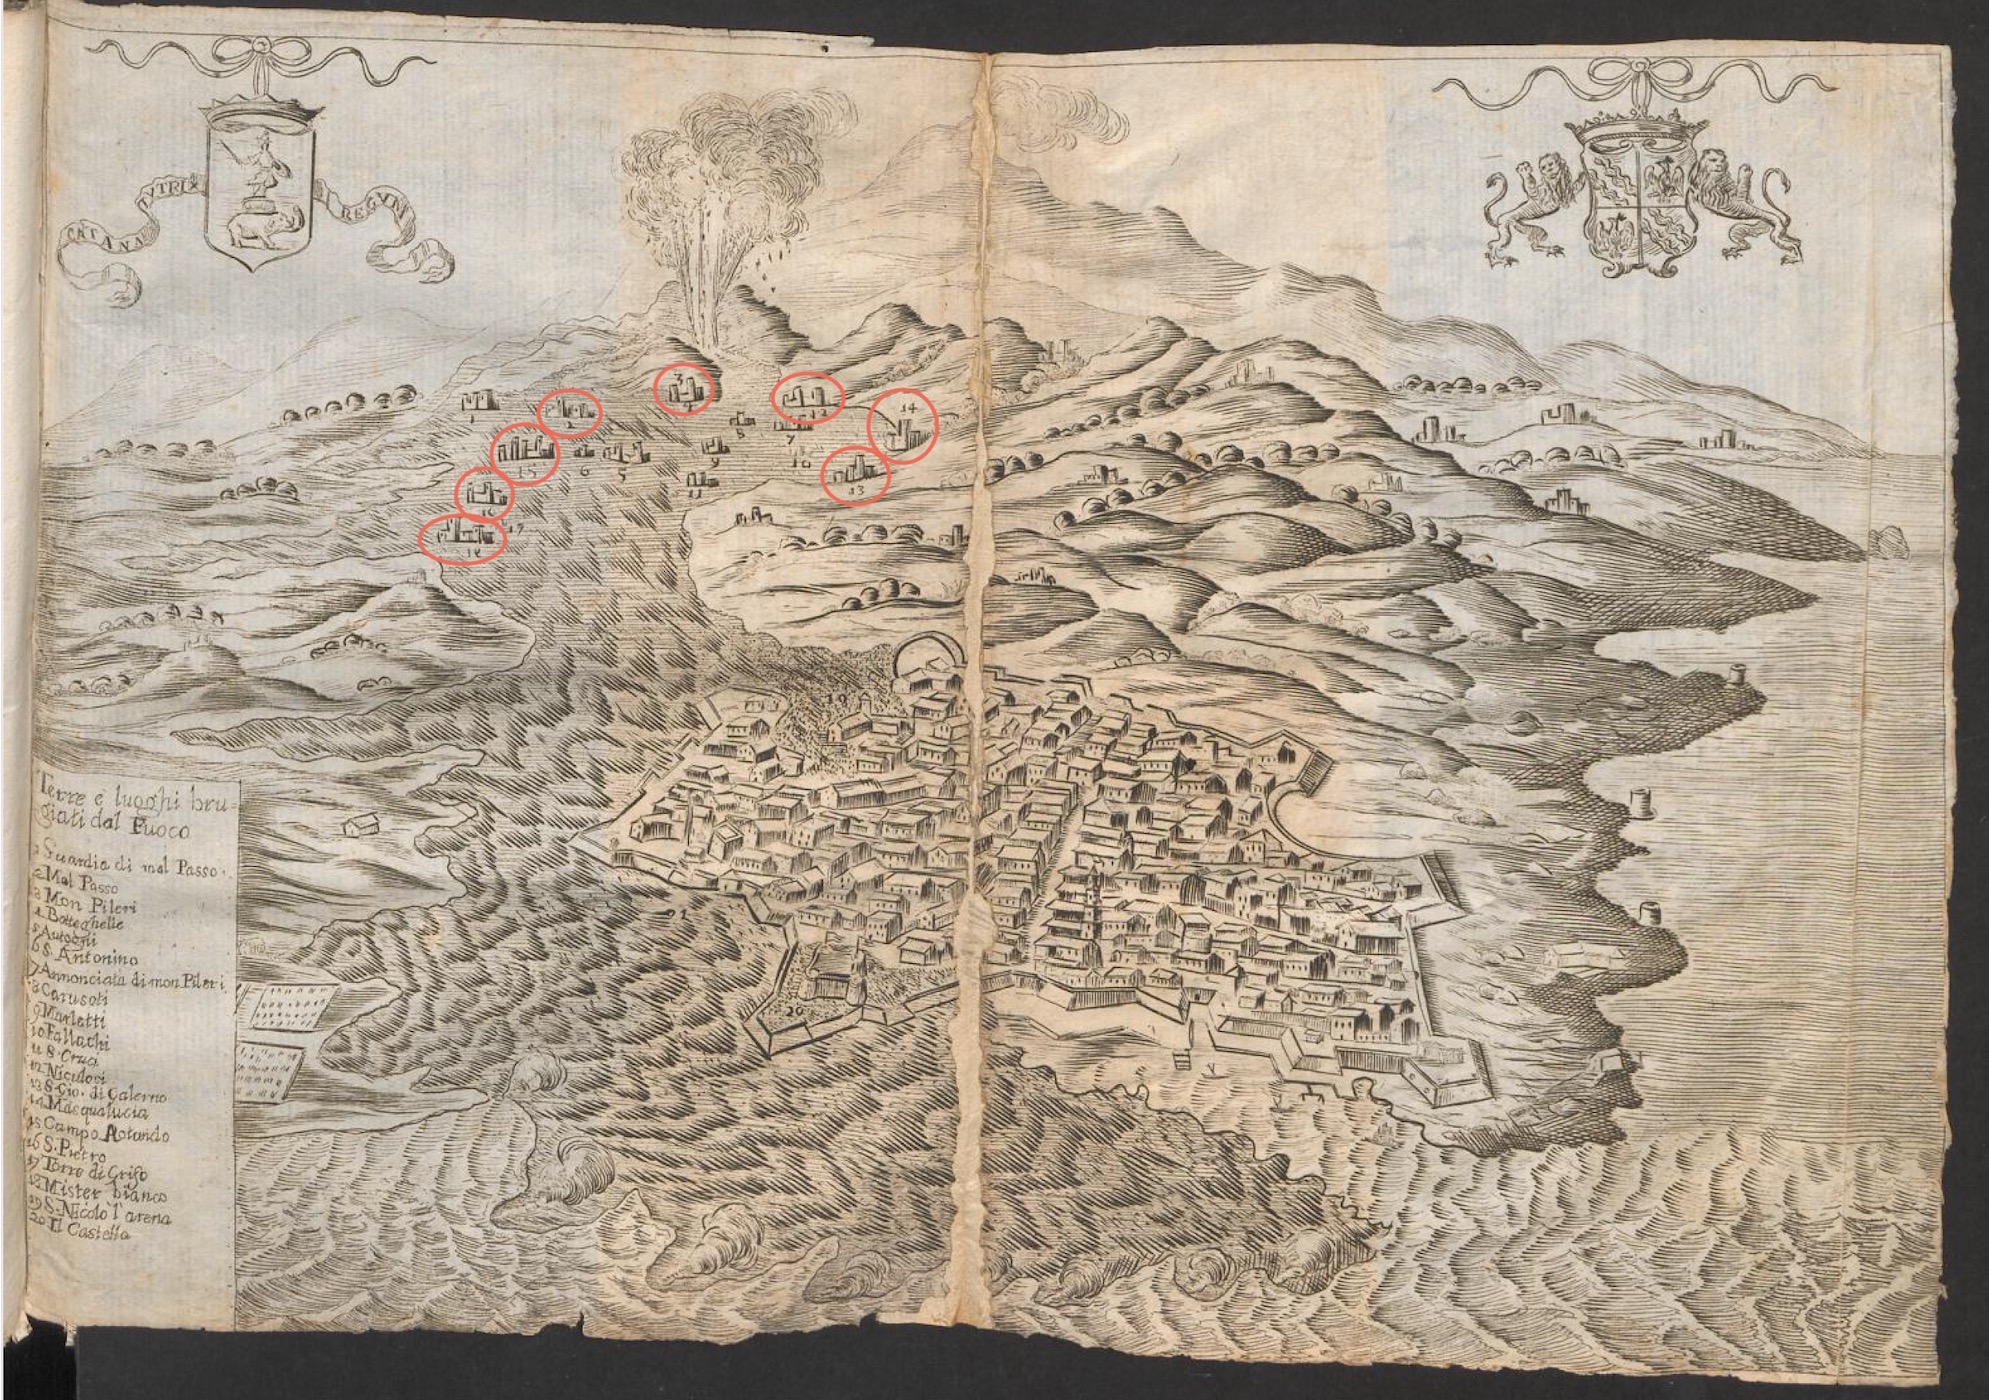 CATANA TVTRIX REGVM
3
14
12
1
2
4
8
7
15
6
5
9
10
13
11
16
17
18
19
Terre e luoghi bru=
giati dal Fuoco
1 Guardia di mal Passo.
2 Mal Passo
3 Mon Pileri
4 Botteghelle
5
6 S. Antonino
7 Annonciata di mon Pileri
8 Carusoti
9 Marletti
10 Fallachi
11 S. Cruci
12 Niculosi
13 S. Gio. di Galerno
14 Masqualucia
15 Campo Rotundo
16 S. Pietro
17 Torre di Grifo
18 Mister bianco
19 S. Nicolo l'arena
20 Il Castello
21
20